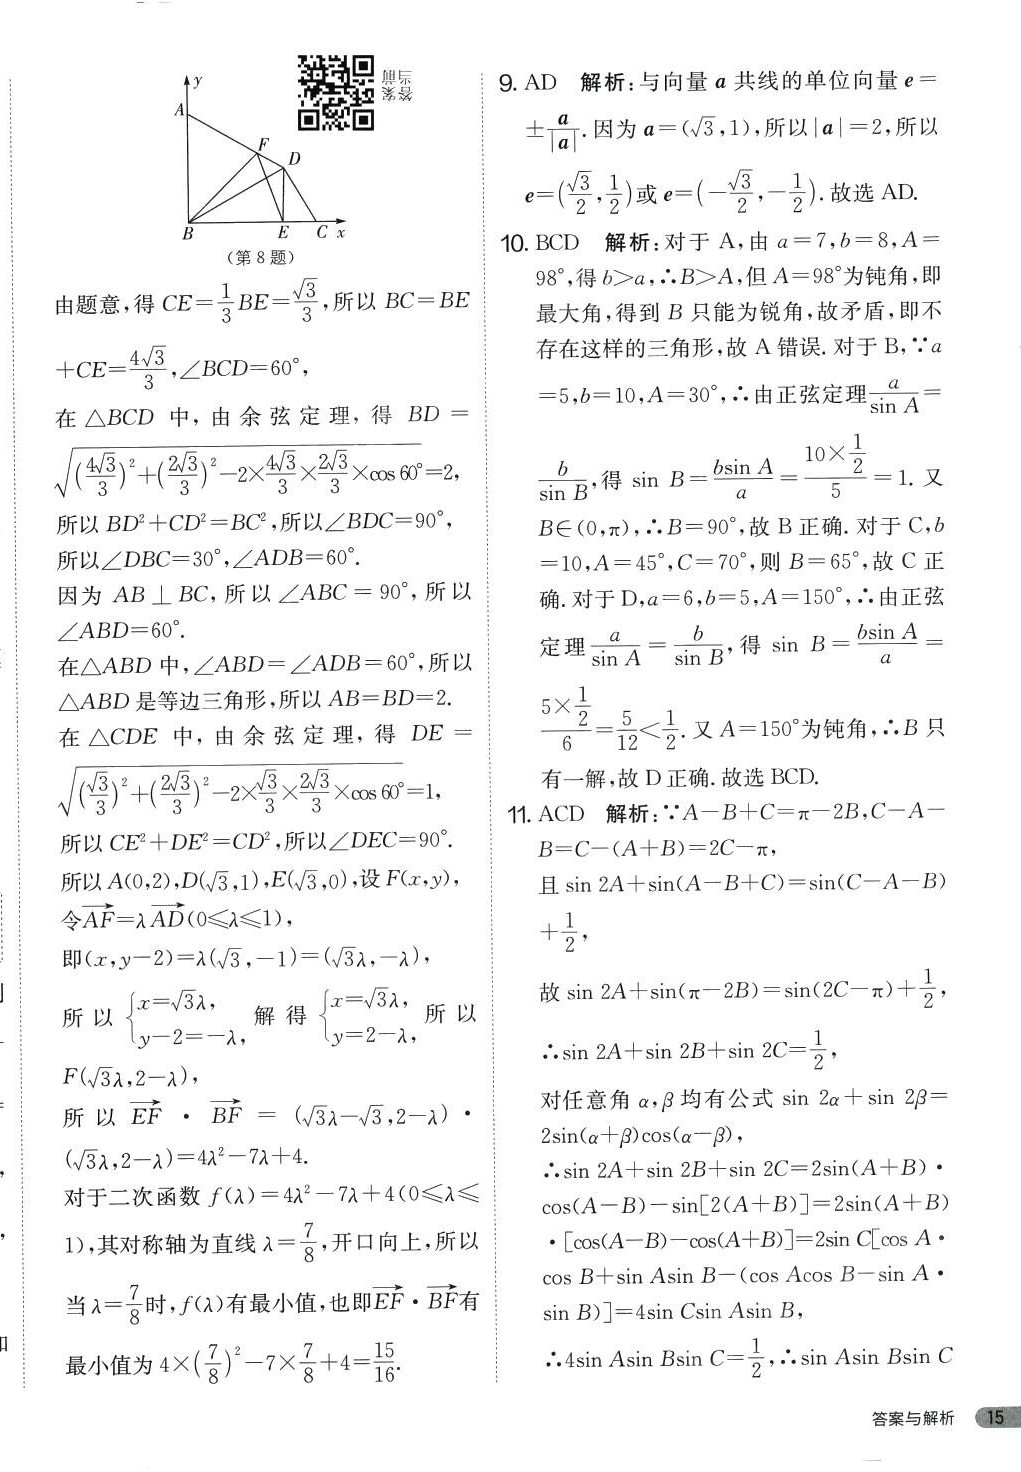 y
A
F
D
B
E
C
x
(第8题)
答案
当前
由题意,得 CE=1/3BE=√3/3,所以 BC=BE
+CE=4√3/3,∠BCD=60°,
在 △BCD 中, 由 余 弦 定 理, 得 BD =
√((4√3/3)²+(2√3/3)²-2×4√3/3×2√3/3×cos 60°)=2,
所以 BD²+CD²=BC²,所以∠BDC=90°,
所以∠DBC=30°,∠ADB=60°.
因为 AB⊥BC, 所以 ∠ABC = 90°, 所以
∠ABD=60°.
在△ABD 中,∠ABD=∠ADB=60°,所以
△ABD 是等边三角形,所以 AB=BD=2.
在 △CDE 中, 由 余 弦 定 理, 得 DE =
√((√3/3)²+(2√3/3)²-2×√3/3×2√3/3×cos 60°)=1,
所以 CE²+DE²=CD²,所以∠DEC=90°.
所以 A(0,2),D(√3,1),E(√3,0),设 F(x,y),
令AF→=λAD→(0≤λ≤1),
即(x,y-2)=λ(√3,-1)=(√3λ,-λ),
所以 {x=√3λ, y-2=-λ, 解得 {x=√3λ, y=2-λ, 所以
F(√3λ,2-λ),
所以 EF→ · BF→ = (√3λ-√3,2-λ) ·
(√3λ,2-λ)=4λ²-7λ+4.
对于二次函数 f(λ)=4λ²-7λ+4(0≤λ≤
1),其对称轴为直线 λ=7/8,开口向上,所以
当 λ=7/8时,f(λ)有最小值,也即EF→·BF→有
最小值为 4×(7/8)²-7×7/8+4=15/16.
9. AD 解析:与向量 a 共线的单位向量 e=
±a/|a|.因为 a=(√3,1),所以|a|=2,所以
e=(√3/2,1/2)或 e=(-√3/2,-1/2).故选 AD.
10. BCD 解析:对于 A,由 a=7,b=8,A=
98°,得 b>a,∴B>A,但 A=98°为钝角,即
最大角,得到 B 只能为锐角,故矛盾,即不
存在这样的三角形,故 A 错误.对于 B,∵a
=5,b=10,A=30°,∴由正弦定理a/sin A=
b/sin B,得 sin B=bsin A/a=(10×1/2)/5=1. 又
B∈(0,π),∴B=90°,故 B 正确.对于 C,b
=10,A=45°,C=70°,则 B=65°,故 C 正
确.对于 D,a=6,b=5,A=150°,∴由正弦
定理 a/sin A=b/sin B,得 sin B=bsin A/a=
(5×1/2)/6=5/12<1/2.又 A=150°为钝角,∴B 只
有一解,故 D 正确.故选 BCD.
11. ACD 解析:∵A-B+C=π-2B,C-A-
B=C-(A+B)=2C-π,
且 sin 2A+sin(A-B+C)=sin(C-A-B)
+1/2,
故 sin 2A+sin(π-2B)=sin(2C-π)+1/2,
∴sin 2A+sin 2B+sin 2C=1/2,
对任意角 α,β 均有公式 sin 2α+sin 2β=
2sin(α+β)cos(α-β),
∴sin 2A+sin 2B+sin 2C=2sin(A+B)·
cos(A-B)-sin[2(A+B)]=2sin(A+B)
·[cos(A-B)-cos(A+B)]=2sin C[cos A·
cos B+sin Asin B-(cos Acos B-sin A·
sin B)]=4sin Csin Asin B,
∴4sin Asin Bsin C=1/2,∴sin Asin Bsin C
答案与解析 15